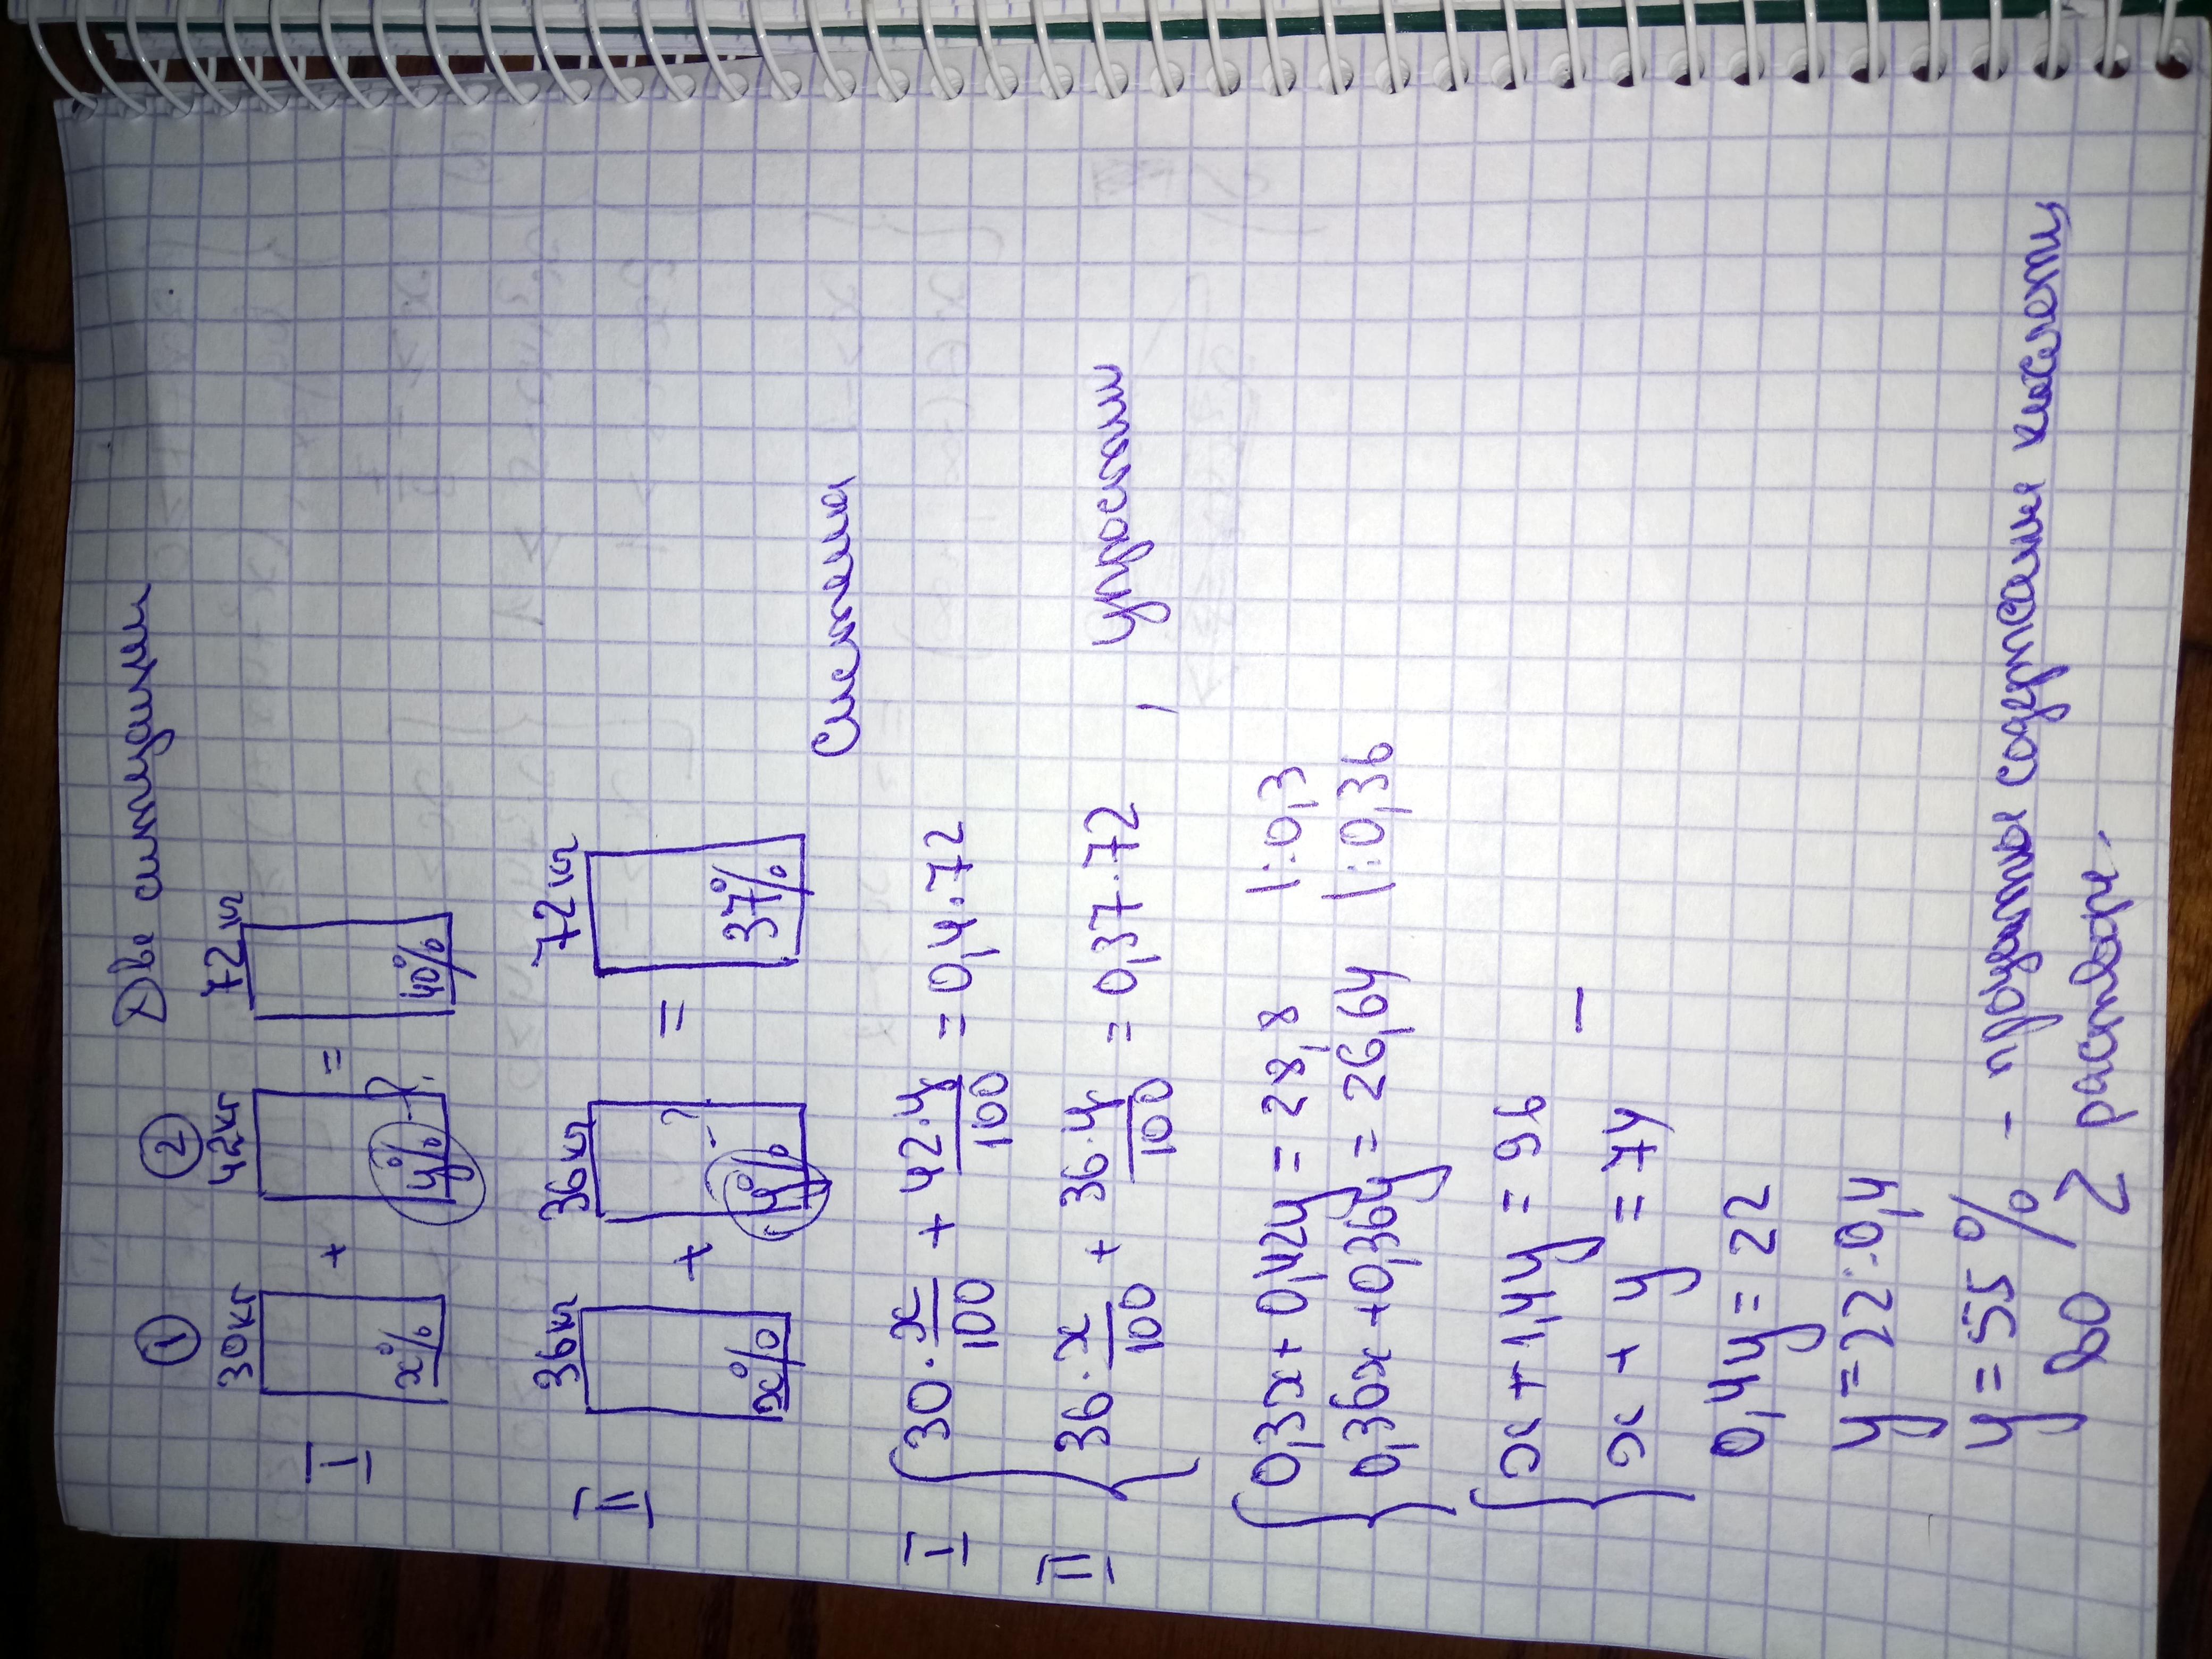 Две ситуации
① ②
30кг 42кг 72кг
I x% + y% - ? = 40%
36кг 36кг 72кг
II x% + y% - ? = 37%
Система
I { 30 · x/100 + 42 · y/100 = 0,4 · 72
II 36 · x/100 + 36 · y/100 = 0,37 · 72 , упростим
{ 0,3x + 0,42y = 28,8 | : 0,3
0,36x + 0,36y = 26,64 | : 0,36
{ x + 1,4y = 96
x + y = 74 —
0,4y = 22
y = 22 : 0,4
y = 55 % - проценты содержание кислоты
во 2 растворе.